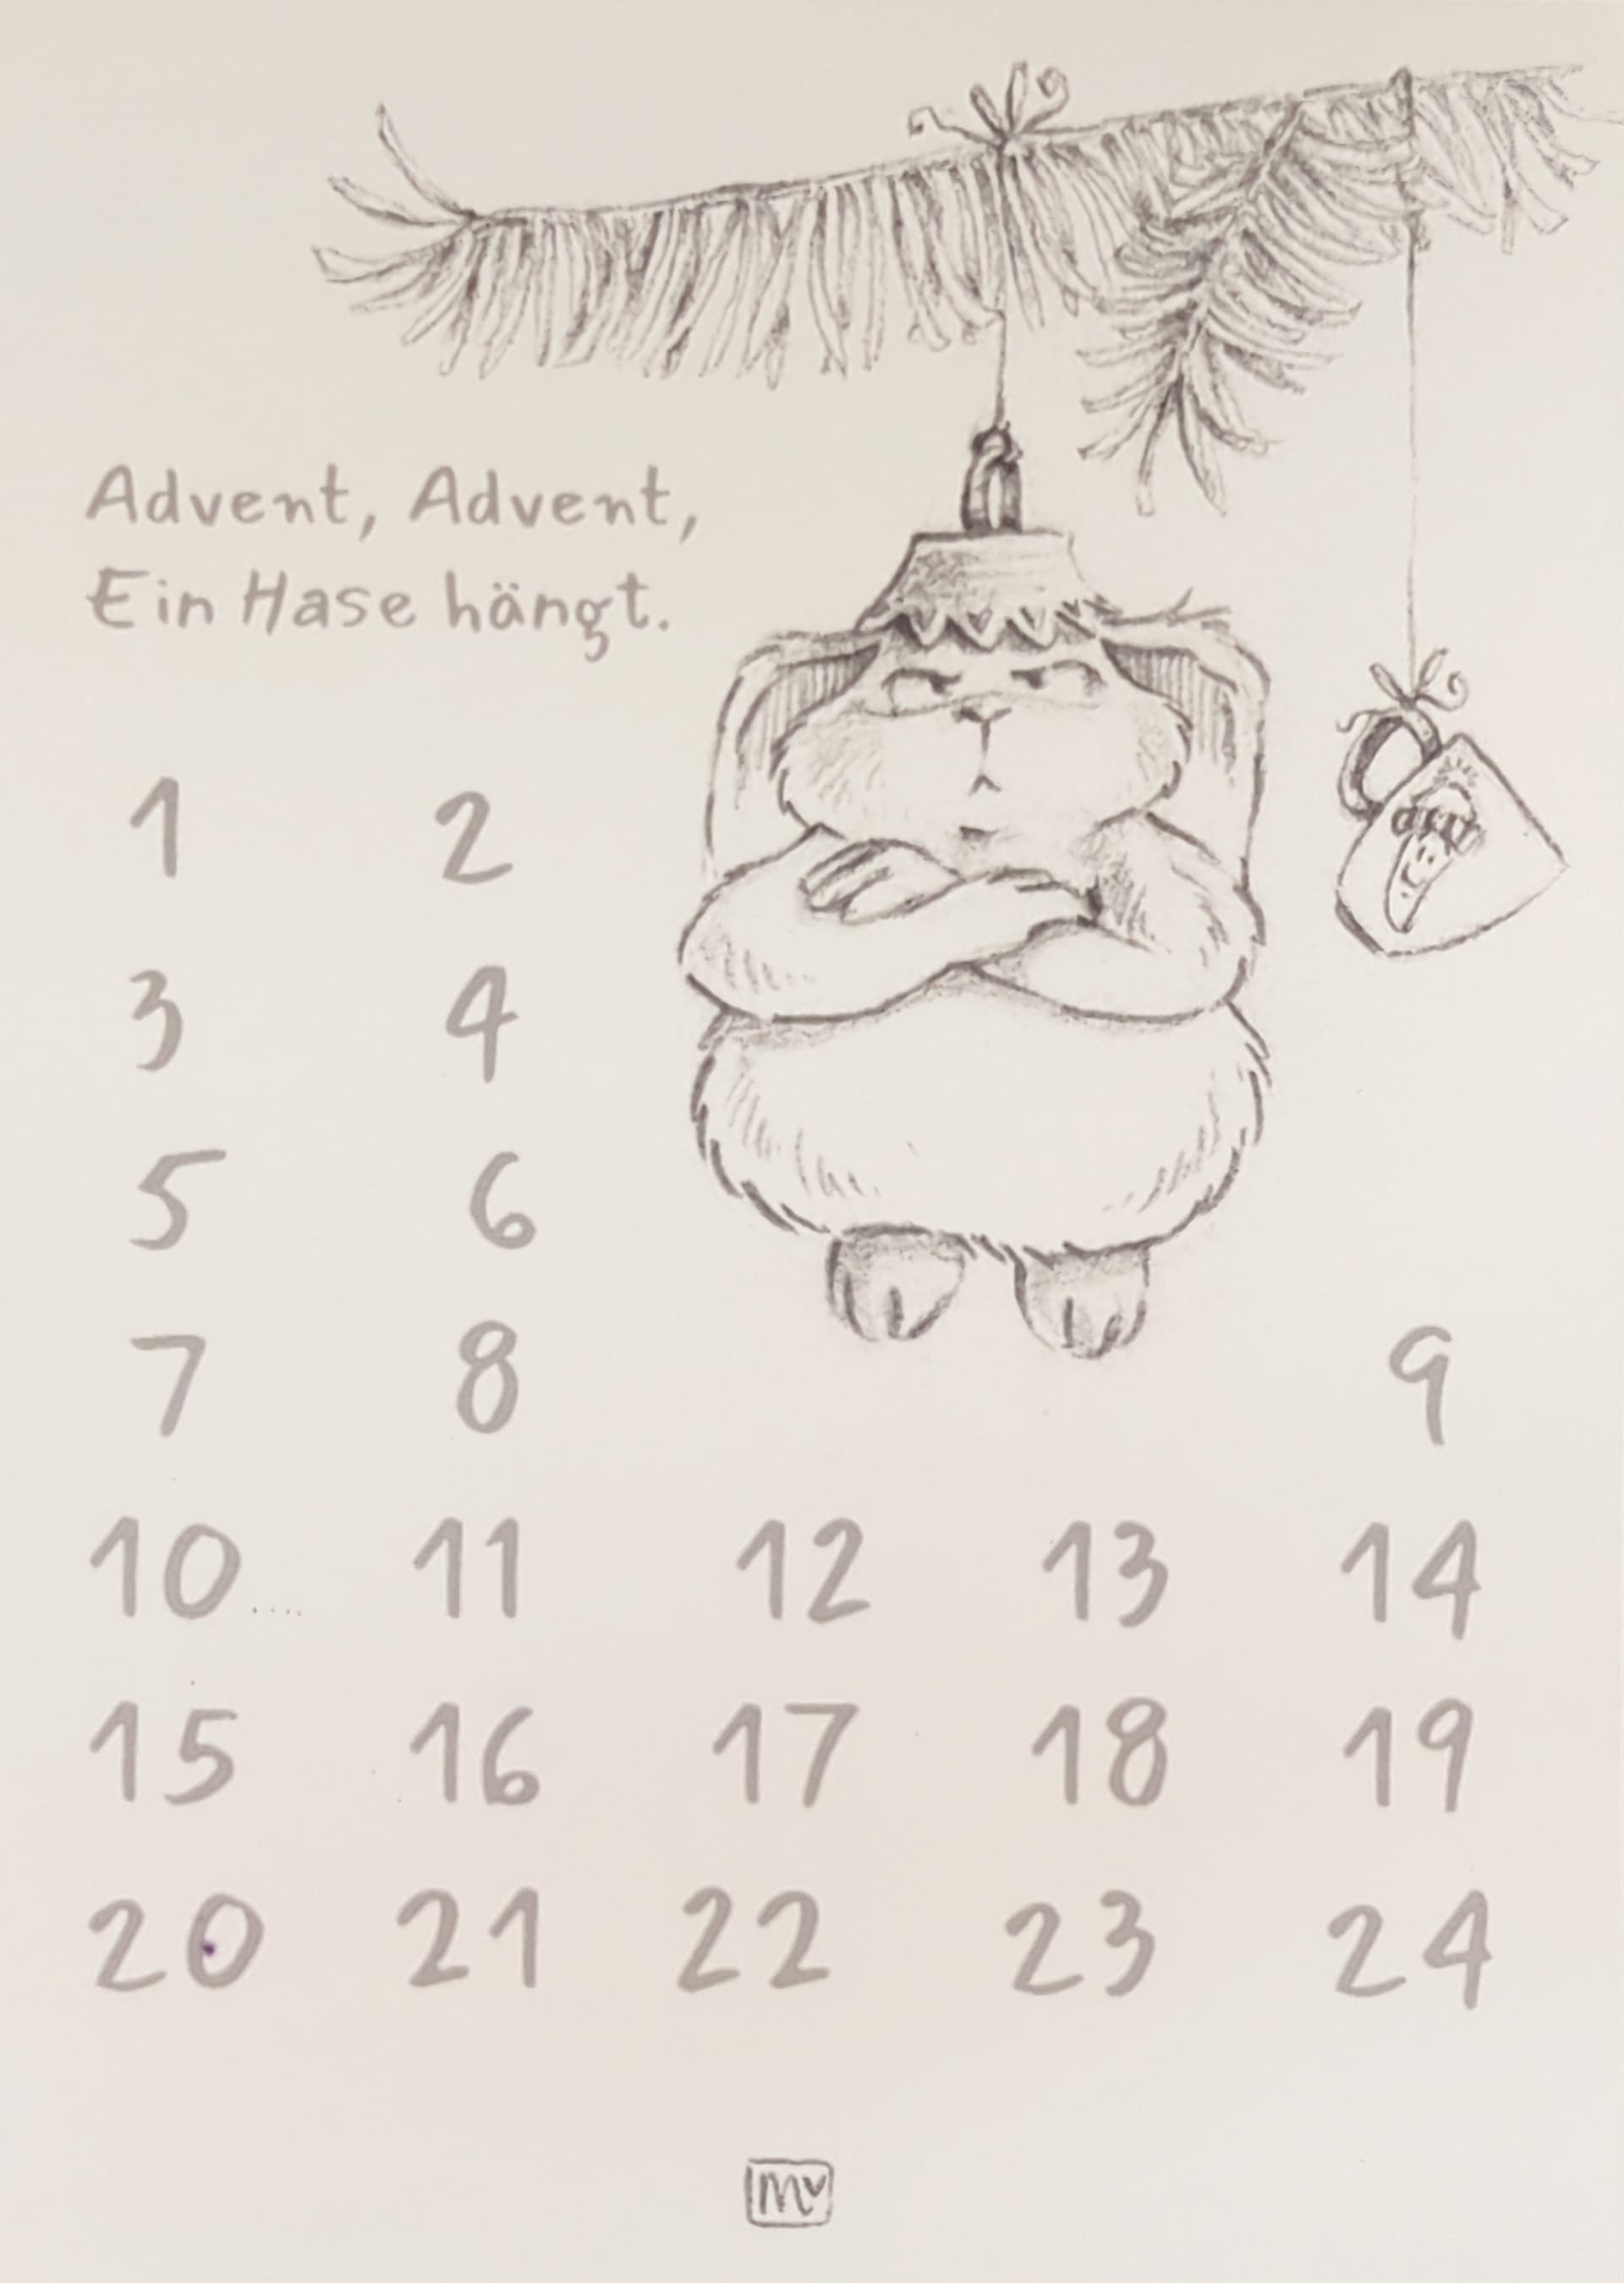 Advent, Advent,
Ein Hase hängt.
1 2
3 4
5 6
7 8 9
10 11 12 13 14
15 16 17 18 19
20 21 22 23 24
MV